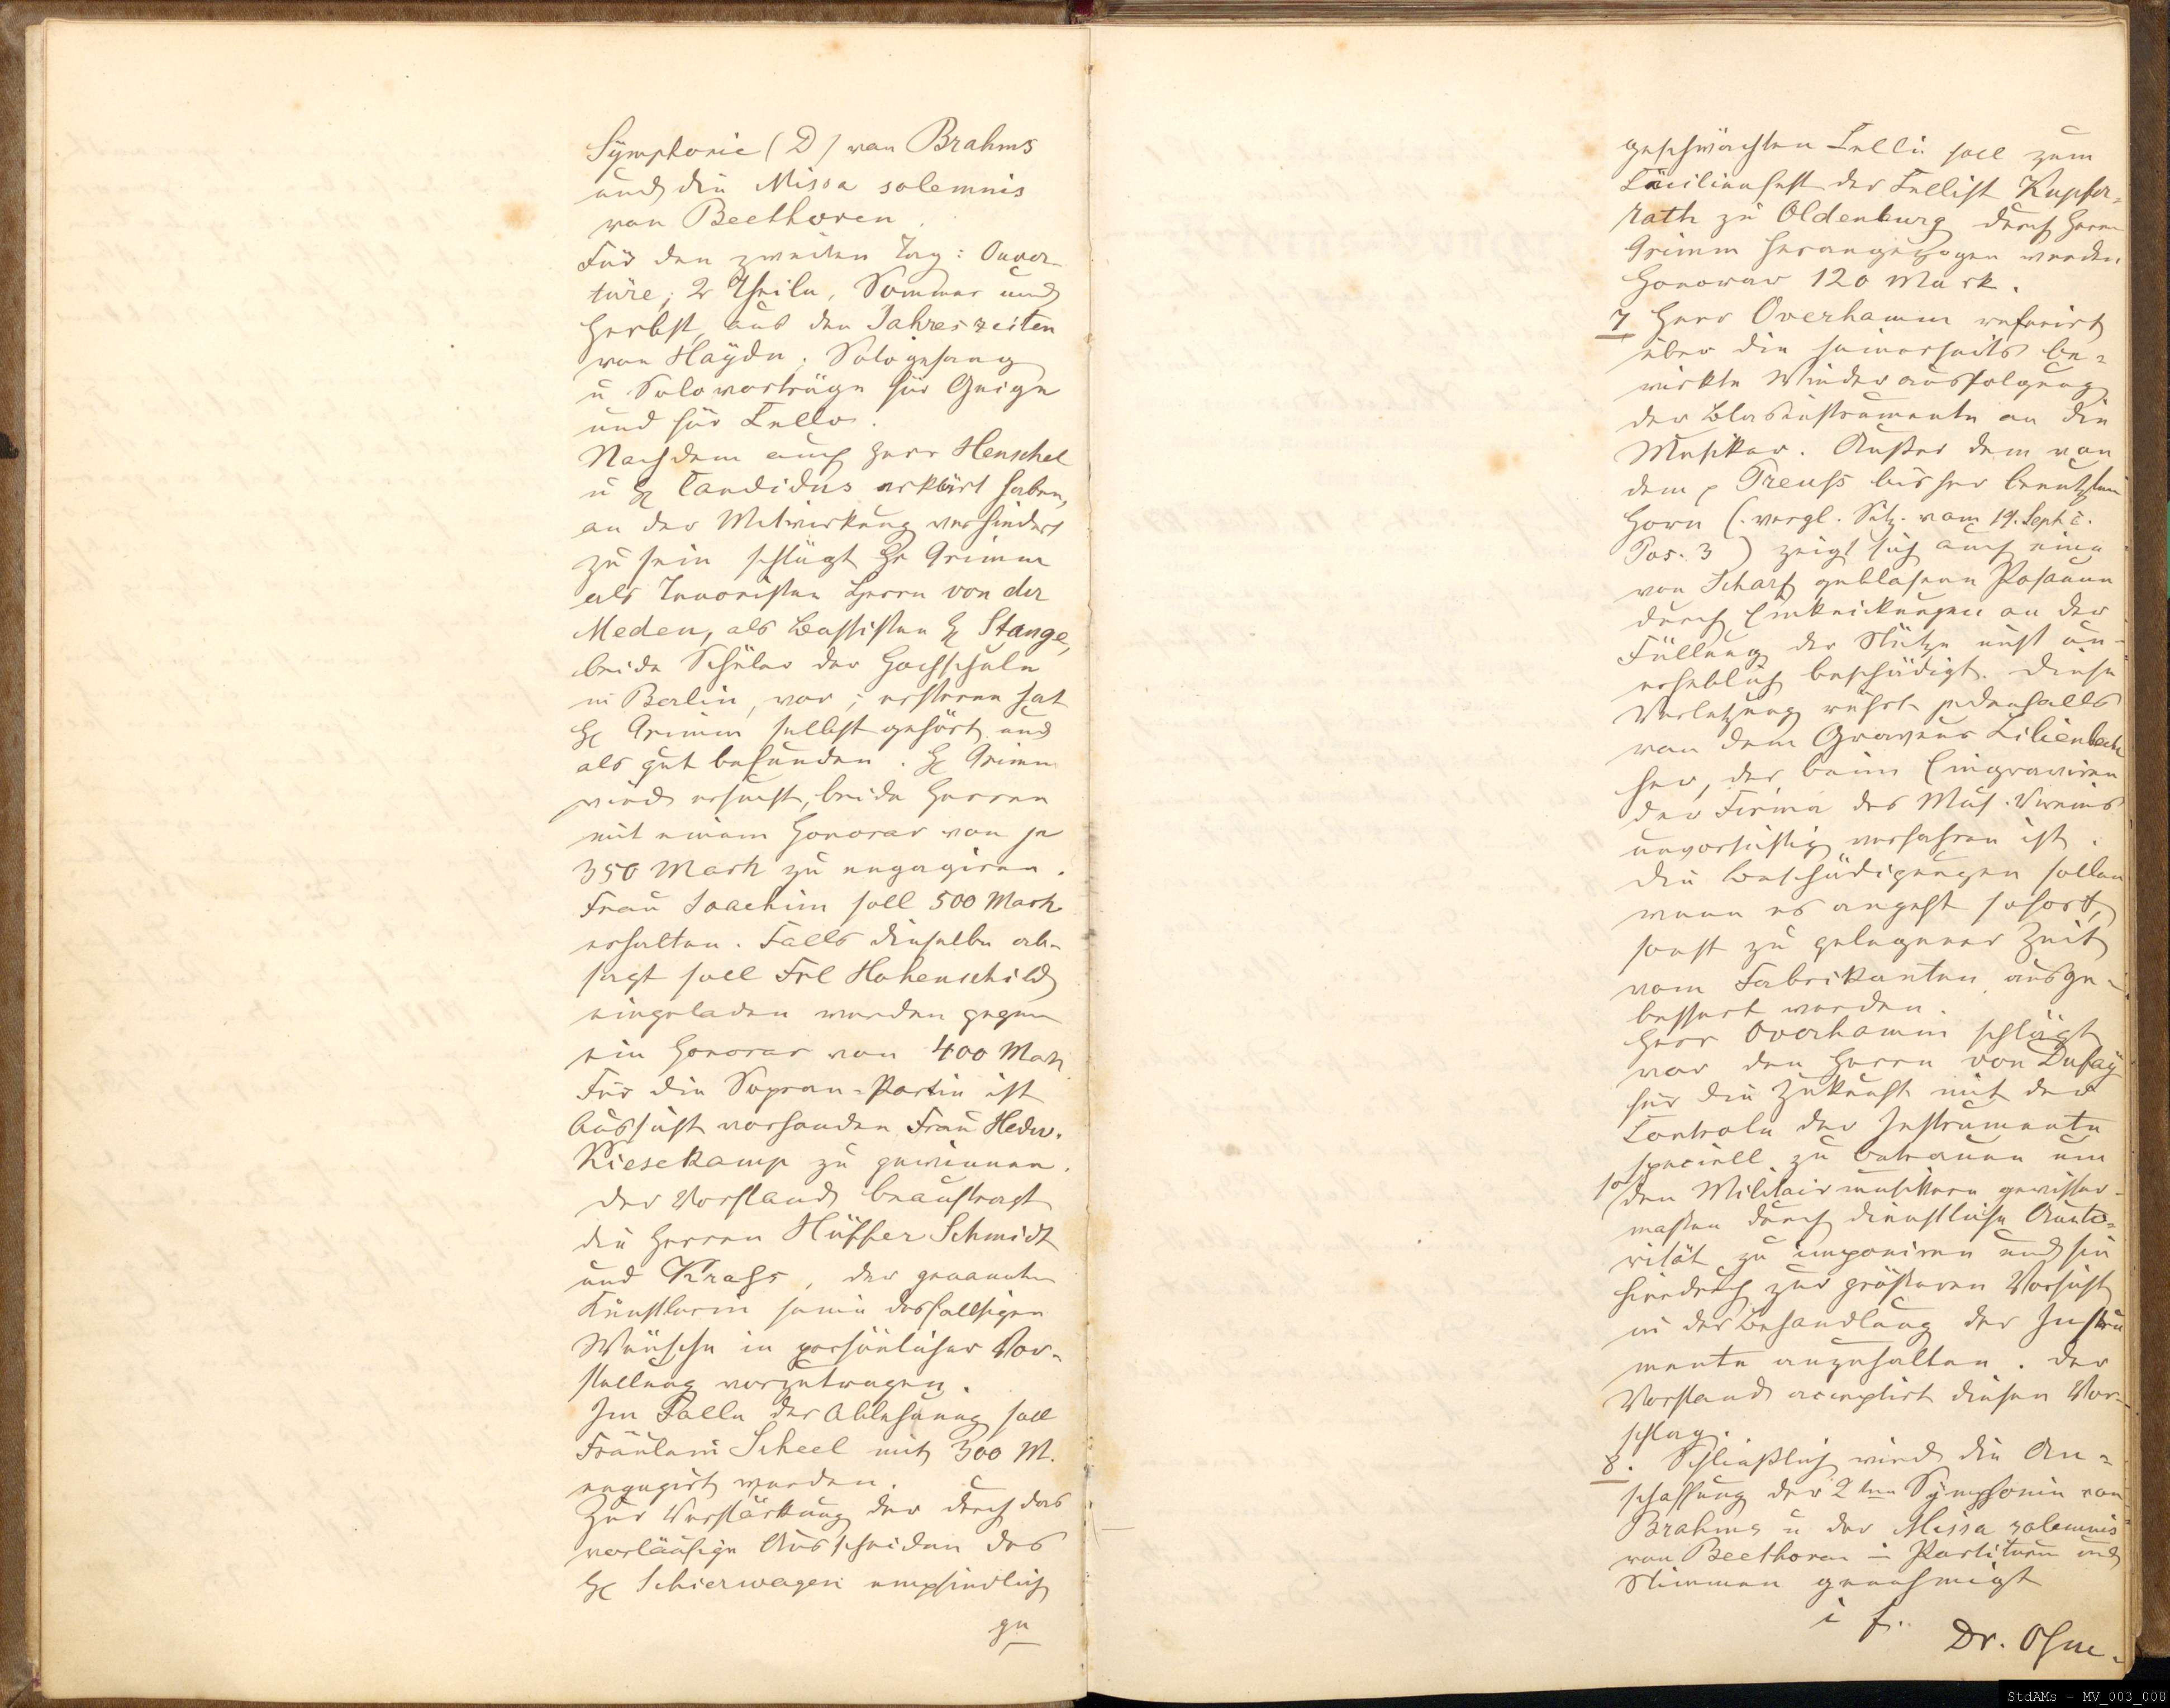 Symphonie (D) von Brahms
und die Missa solemnis
von Beethoven.
Für den zweiten Tag: Ouver-
türe, 2 Theile, Sommer und
Herbst, aus den Jahreszeiten
von Haydn. Sologesang
u Solovorträge für Geige
und für Cello.
Nachdem auch Herr Henschel
u H Candidus erklärt haben,
an der Mitwirkung verhindert
zu sein schlägt Hr Grimm
als Tenoristen Herrn von der
Meden, als Bassisten H Stange,
beide Schüler der Hochschule
in Berlin, vor; ersteren hat
H Grimm selbst gehört und
als gut befunden. H Grimm
wird ersucht, beide Herren
mit einem Honorar von je
350 Mark zu engagiren.
Frau Joachim soll 500 Mark
erhalten. Falls dieselbe ab-
sagt soll Frl Hohenschild
eingeladen werden gegen
ein Honorar von 400 Mark
Für die Sopran-Partie ist
Aussicht vorhanden Frau Hedw.
Kiesekamp zu gewinnen.
Der Vorstand beauftragt
die Herren Hüffer Schmidt
und Krass, der genannten
Künstlerin seine desfallsigen
Wünsche in persönlicher Vor-
stellung vorzutragen.
Im Falle der Ablehnung soll
Fräulein Scheel mit 300 M.
engagirt werden.
Zur Verstärkung der durch das
vorläufige Ausscheiden des
H Schierwagen empfindlich
ge
geschwächten Celli soll zum
Cäcilienfest der Cellist Kupfer-
rath zu Oldenburg durch Herrn
Grimm herangezogen werden
Honorar 120 Mark.
7 Herr Overhamm referirt
über die seinerseits be-
wirkte Wiederausfolgung
der Blasinstrumente an die
Musiker. Außer dem von
dem p Treuss bisher benutzten
Horn (: vergl. Sitz. vom 19. Sept c.
Pos. 3) zeigt sich auch eine
von Scharf geblasene Posaune
durch Einknickungen an der
Füllung der Stütze nicht un-
erheblich beschädigt. Diese
Verletzung rührt jedenfalls
von dem Graveur Lilienbech
her, der beim Eingraviren
der Firma des Mus. Vereins
unvorsichtig verfahren ist.
Die Beschädigungen sollen
wenn es angeht sofort,
sonst zu gelegener Zeit
vom Fabrikanten ausge-
bessert werden.
Herr Overhamm schlägt
vor den Herrn von Dufay
für die Zukunft mit der
Controle der Instrumente
speciell zu betrauen um
so den Militairmusikern gewisser-
maßen durch dienstliche Auto-
rität zu imponiren und sie
hierdurch zur größeren Vorsicht
in der Behandlung der Instru
mente anzuhalten. Der
Vorstand acceptirt diesen Vor-
schlag.
8. Schließlich wird die An-
schaffung der 2ten Symphonie von
Brahms u der Missa solemnis
von Beethoven in Partitur und
Stimmen genehmigt
i f.
Dr. Ohm.
StdAMs - MV_003_008